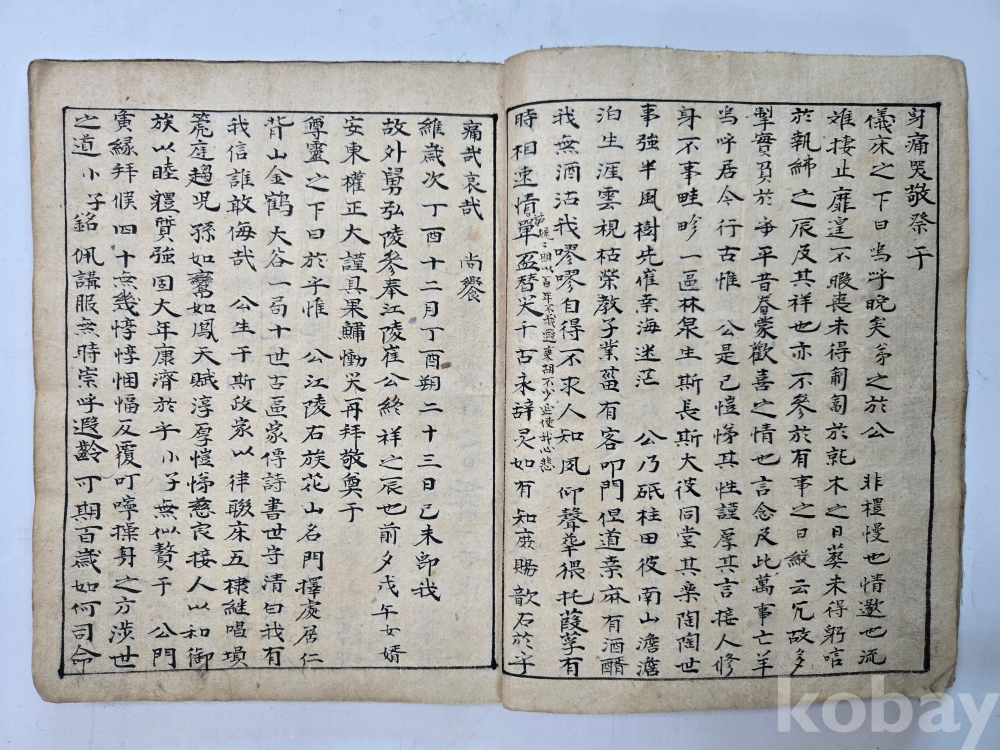 身痛哭敬祭于
儀床之下曰嗚呼晚矣弟之於公 非禮慢也情邀也流
難捿止靡遑不暇喪未得匍匐於就木之日葬未得躬唁
於執紼之辰及其祥也亦不參於有事之日縱云冗故多
掣實負於 平昔眷蒙歡喜之情也言念及此萬事亡羊
嗚呼居今行古惟 公是已愷悌其性謹厚其言接人修
身不事畦畛一區林泉生斯長斯大彼同堂其樂陶陶世
事強半風樹先催幸海迷茫 公乃砥柱田彼南山澹澹
泊生涯雲視枯榮教子業 有客叩門但道桑麻有酒醑
我無酒沽我嘐嘐自得不求人知夙仰聲華猥托葭莩有
期以百年不我遐棄 不少 使我心悲
時相速情單盃替哭千古永辭灵如有知庶賜歆右於乎
痛哉哀哉 尚饗
維歲次丁酉十二月丁酉朔二十三日己未卽我
故外舅弘陵參奉江陵崔公終祥之辰也前夕戊午女婿
安東權正大謹具果鱐慟哭再拜敬奠于
尊靈之下曰於乎惟 公江陵石族花山名門擇處居仁
背山金鶴大谷一局十世古區家傳詩書世守清白我有
我信誰敢侮哉 公生于斯政家以律聯床五棣継唱塤
箎庭趨児孫如鸞如鳳天賦淳厚愷悌慈良接人以和御
族以睦軆質強固大年康濟於乎小子無似贅于 公門
寅緣拜候四十無幾惇惇悃愊反覆叮嚀操身之方涉世
之道小子銘佩講服無時崇呼遐齡可期百歲如何司命
kobay